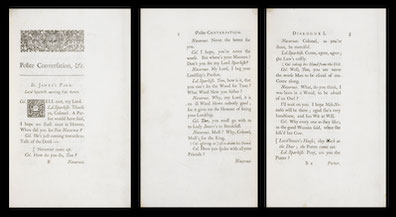 Polite Conversation, &c.
St. James's Park.
Lord Sparkish meeting Col. Atwit.
Col. WELL met, my Lord.
Ld. Sparkish. Thank
ye, Colonel. A Par-
son would have said,
I hope we shall meet in Heaven.
When did you see Tom Neverout?
Col. He's just coming towards us.
Talk of the Devil —
[Neverout comes up.
Col. How do you do, Tom?
B Neverout.
2 Polite Conversation.
Neverout. Never the better for
you.
Col. I hope, you're never the
worse. But where's your Manners?
Don't you see my Lord Sparkish?
Neverout. My Lord, I beg your
Lordship's Pardon.
Ld. Sparkish. Tom, how is it, that
you can't see the Wood for Trees?
What Wind blew you hither?
Neverout. Why, my Lord, it is
an ill Wind blows nobody good;
for it gives me the Honour of seeing
your Lordship.
Col. Tom, you must go with us
to Lady Smart's to Breakfast.
Neverout. Must? Why, Colonel,
Must's for the King.
Col. Have you spoke with all your
Friends?
Neverout.
Dialogue I. 3
Neverout. Colonel, as you're
stout, be merciful.
Ld. Sparkish. Come, agree, agree;
the Law's costly.
Col. Well, Tom, you are never
the worse Man to be afraid of me.
Come along.
Neverout. What, do you think, I
was born in a Wood, to be afraid
of an Owl?
I'll wait on you. I hope Miss No-
table will be there; egad she's very
handsome, and has Wit at Will.
Col. Why every one as they like,
as the good Woman said, when she
kiss'd her Cow.
Ld. Sparkish. Pray, are you the
Porter?
B 2 Porter.